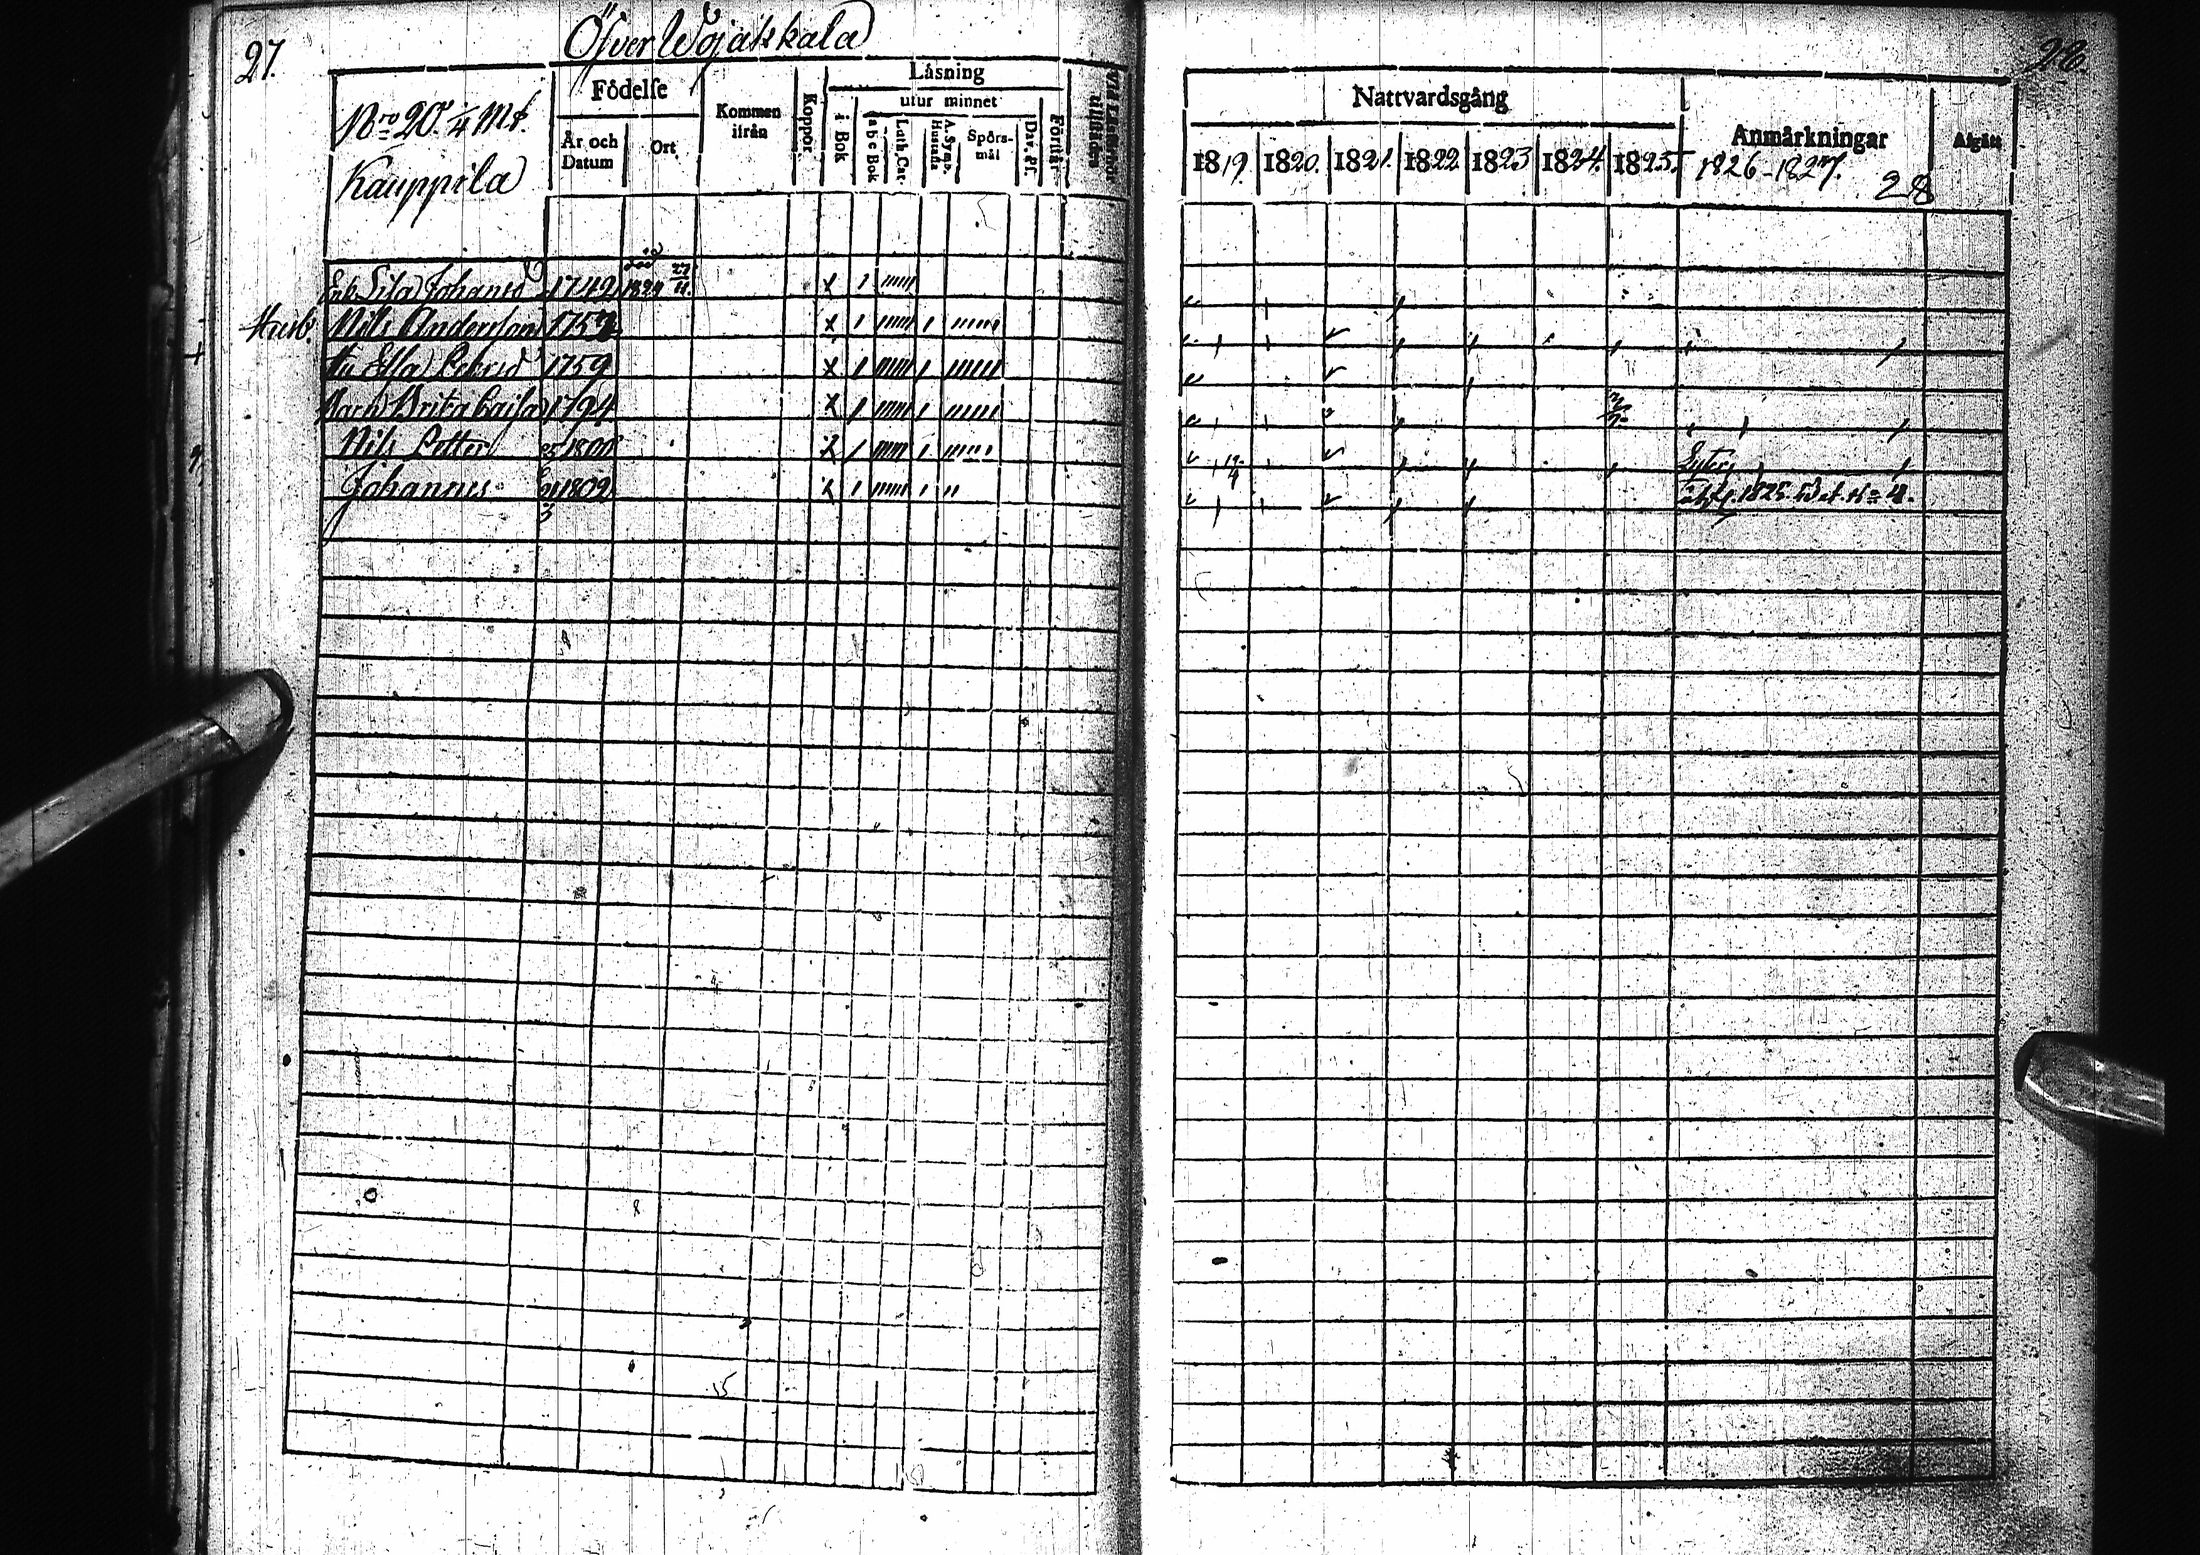 27.
Öfver Wojakkala
N:ro 20. 1/4 Mt.
Kauppila
Födelse
År och Datum
Ort
Kommen ifrån
Koppor
Läsning
i Bok
utur minnet
a b c Bok
Luth. Cat.
A. Symb. Hustafla
Spörs-mål
Dav. Ps.
Förstår
Enk. Lisa Johansd 1742 död 1824 27/11.
Husb. Nils Andersson 1752
Hu Elsa Persd 1759
Barn Brita Cajsa 1794
Nils Petter 25 1800
Johannes 21/3 1802
28.
Nattvardsgång
1819. 1820. 1821. 1822 1823 1824. 1825.
Anmärkningar
1826-1827.
28
Afgått
12/4
1825